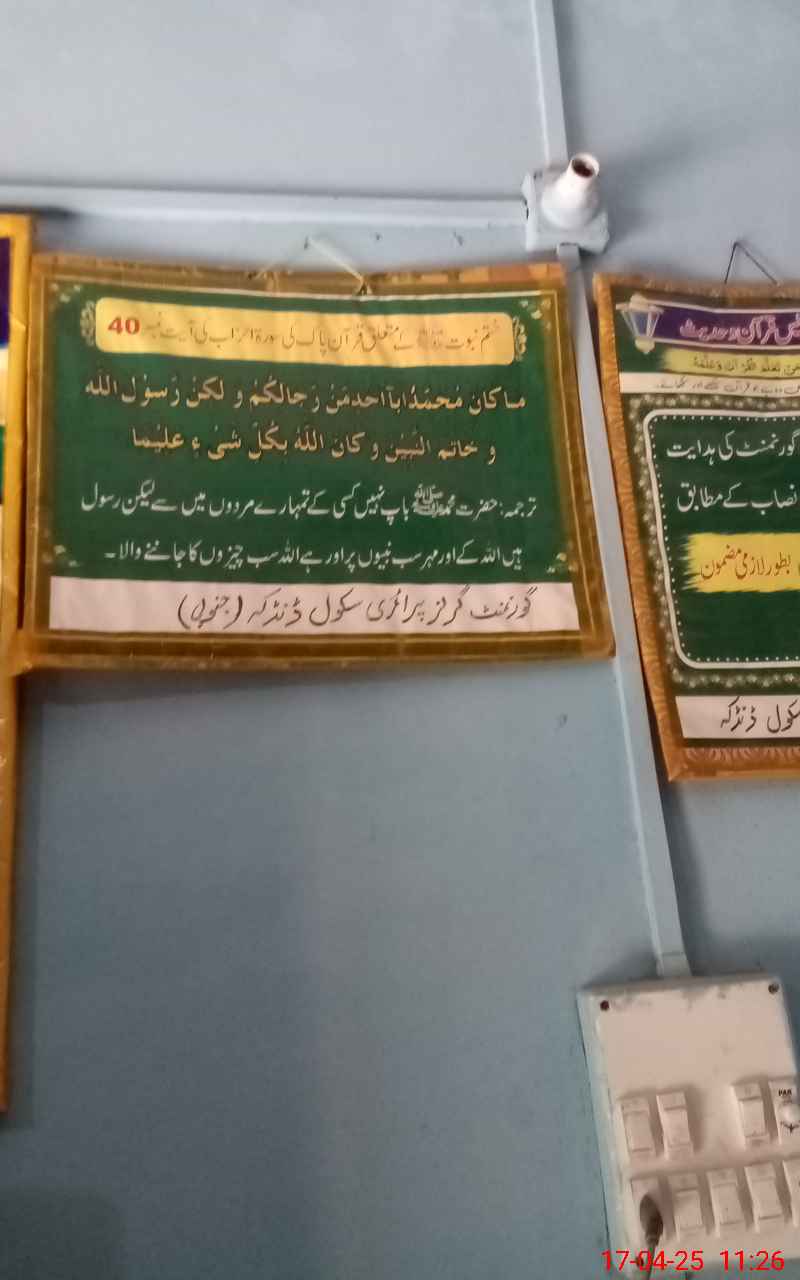 ختم نبوت ﷺ کے متعلق قرآن پاک کی سورۃ احزاب کی آیت نمبر 40
ما كان مُحمّدٌ اباۤ احدٍ مّنْ رّجالِكُمْ و لكنْ رّسوْل اللّٰه
و خاتم النّبيّن و كان اللّٰهُ بكُلّ شىْ ءٍ عليْمًا
ترجمہ: حضرت محمدﷺ باپ نہیں کسی کے تمہارے مردوں میں سے لیکن رسول
ہیں اللہ کے اور مہر سب نبیوں پر اور ہے اللہ سب چیزوں کا جاننے والا۔
گورنمنٹ گرلز پرائمری سکول ڈنڈکہ (جنوبی)
قرآن و حدیث
گورنمنٹ کی ہدایت
نصاب کے مطابق
بطور لازمی مضمون
سکول ڈنڈکہ
17-04-25 11:26